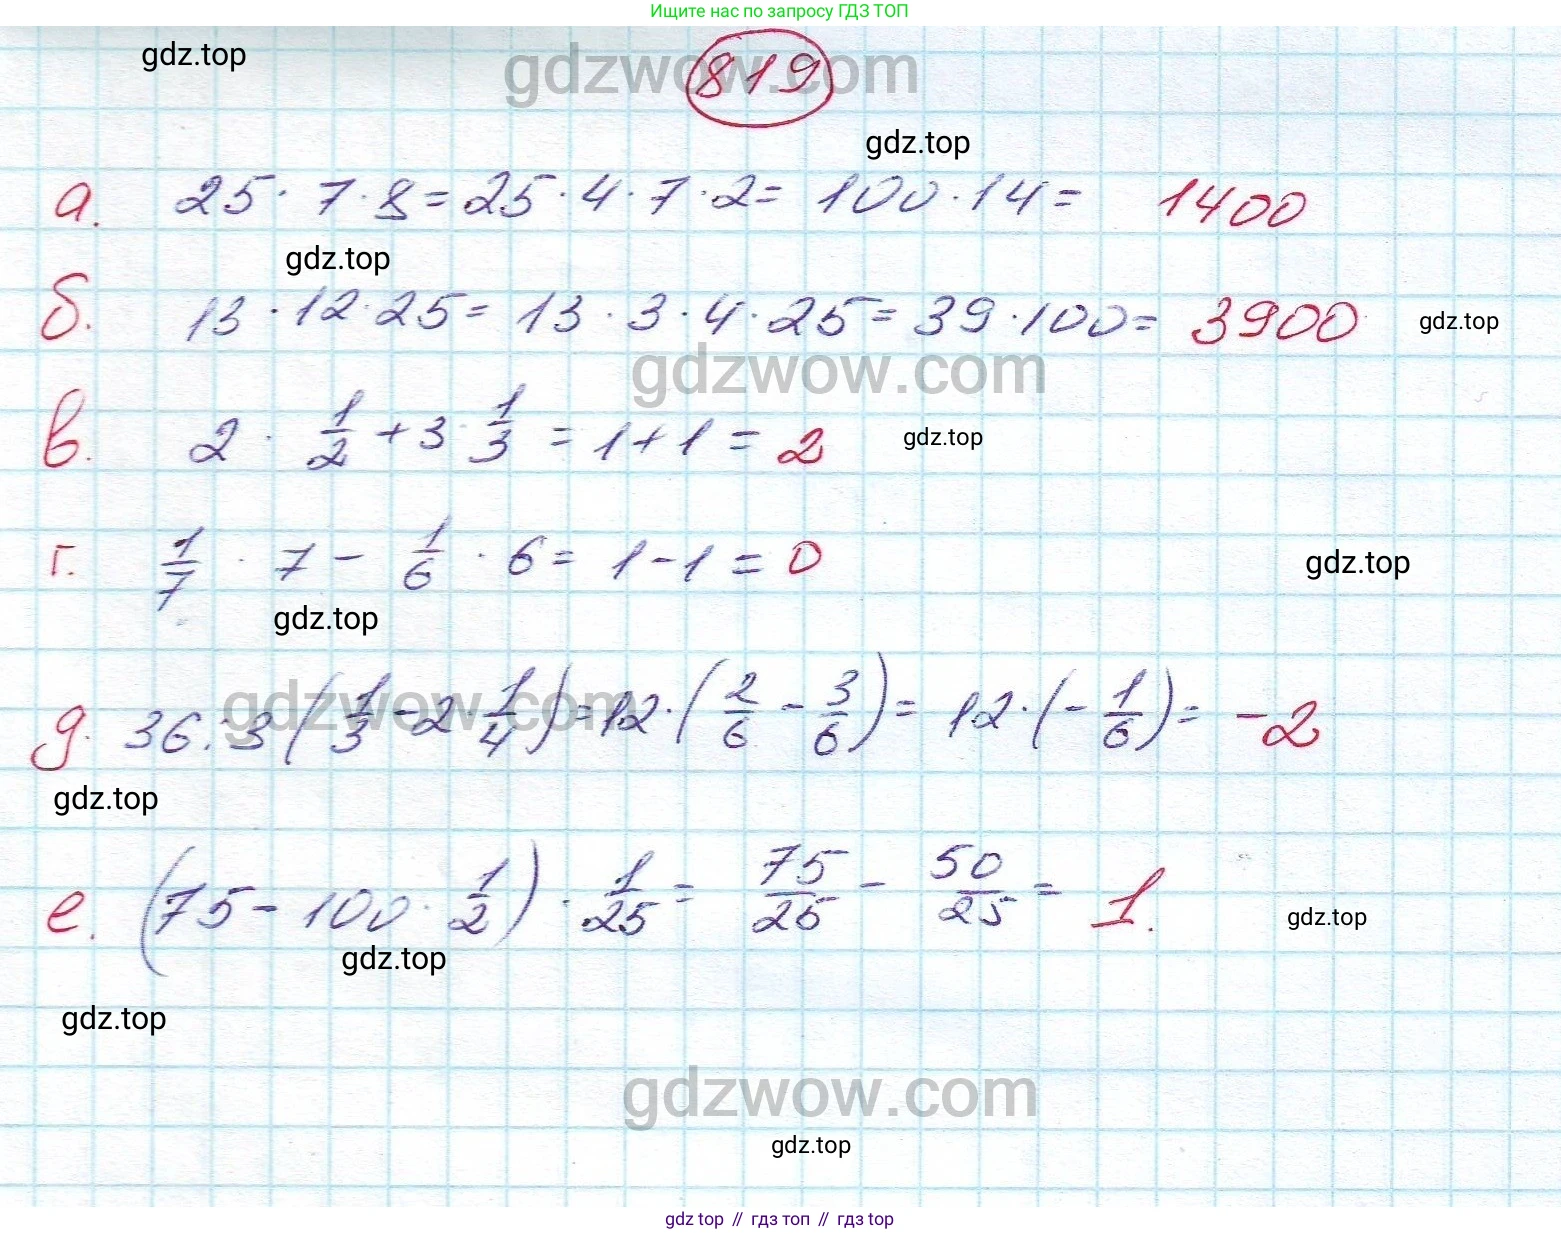 Ищите нас по запросу ГДЗ ТОП
gdz.top
gdzwow.com
819
gdz.top
а. 25 · 7 · 8 = 25 · 4 · 7 · 2 = 100 · 14 = 1400
gdz.top
б. 13 · 12 · 25 = 13 · 3 · 4 · 25 = 39 · 100 = 3900
gdz.top
gdzwow.com
в. 2 · 1/2 + 3 · 1/3 = 1 + 1 = 2
gdz.top
г. 1/7 · 7 - 1/6 · 6 = 1 - 1 = 0
gdz.top
gdz.top
gdzwow.com
д. 36 : 3 (1/3 - 2 · 1/4) = 12 · (2/6 - 3/6) = 12 · (- 1/6) = -2
gdz.top
е. (75 - 100 · 1/2) · 1/25 = 75/25 - 50/25 = 1.
gdz.top
gdz.top
gdz.top
gdzwow.com
gdz.top
gdz top // гдз топ // гдз top